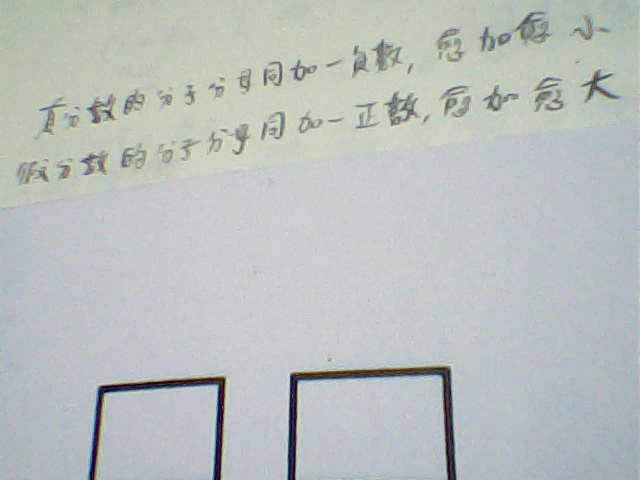 真分数的分子分母同加一负数，愈加愈小
假分数的分子分母同加一正数，愈加愈大